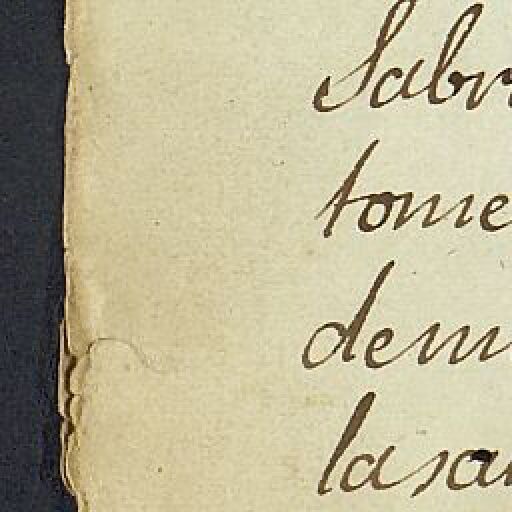 Sabr
tome
dem
lasa